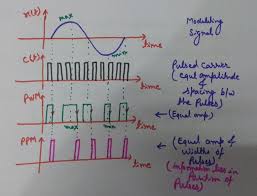 x(t)
max
min
time
Modulating
Signal
C(t)
time
Pulsed Carrier
(Equal amplitude
& spacing b/w
the Pulses)
PWM
max
min
time
(Equal amp)
PPM
time
(Equal amp &
widths of
Pulses)
(Information lies in
Position of
Pulses)